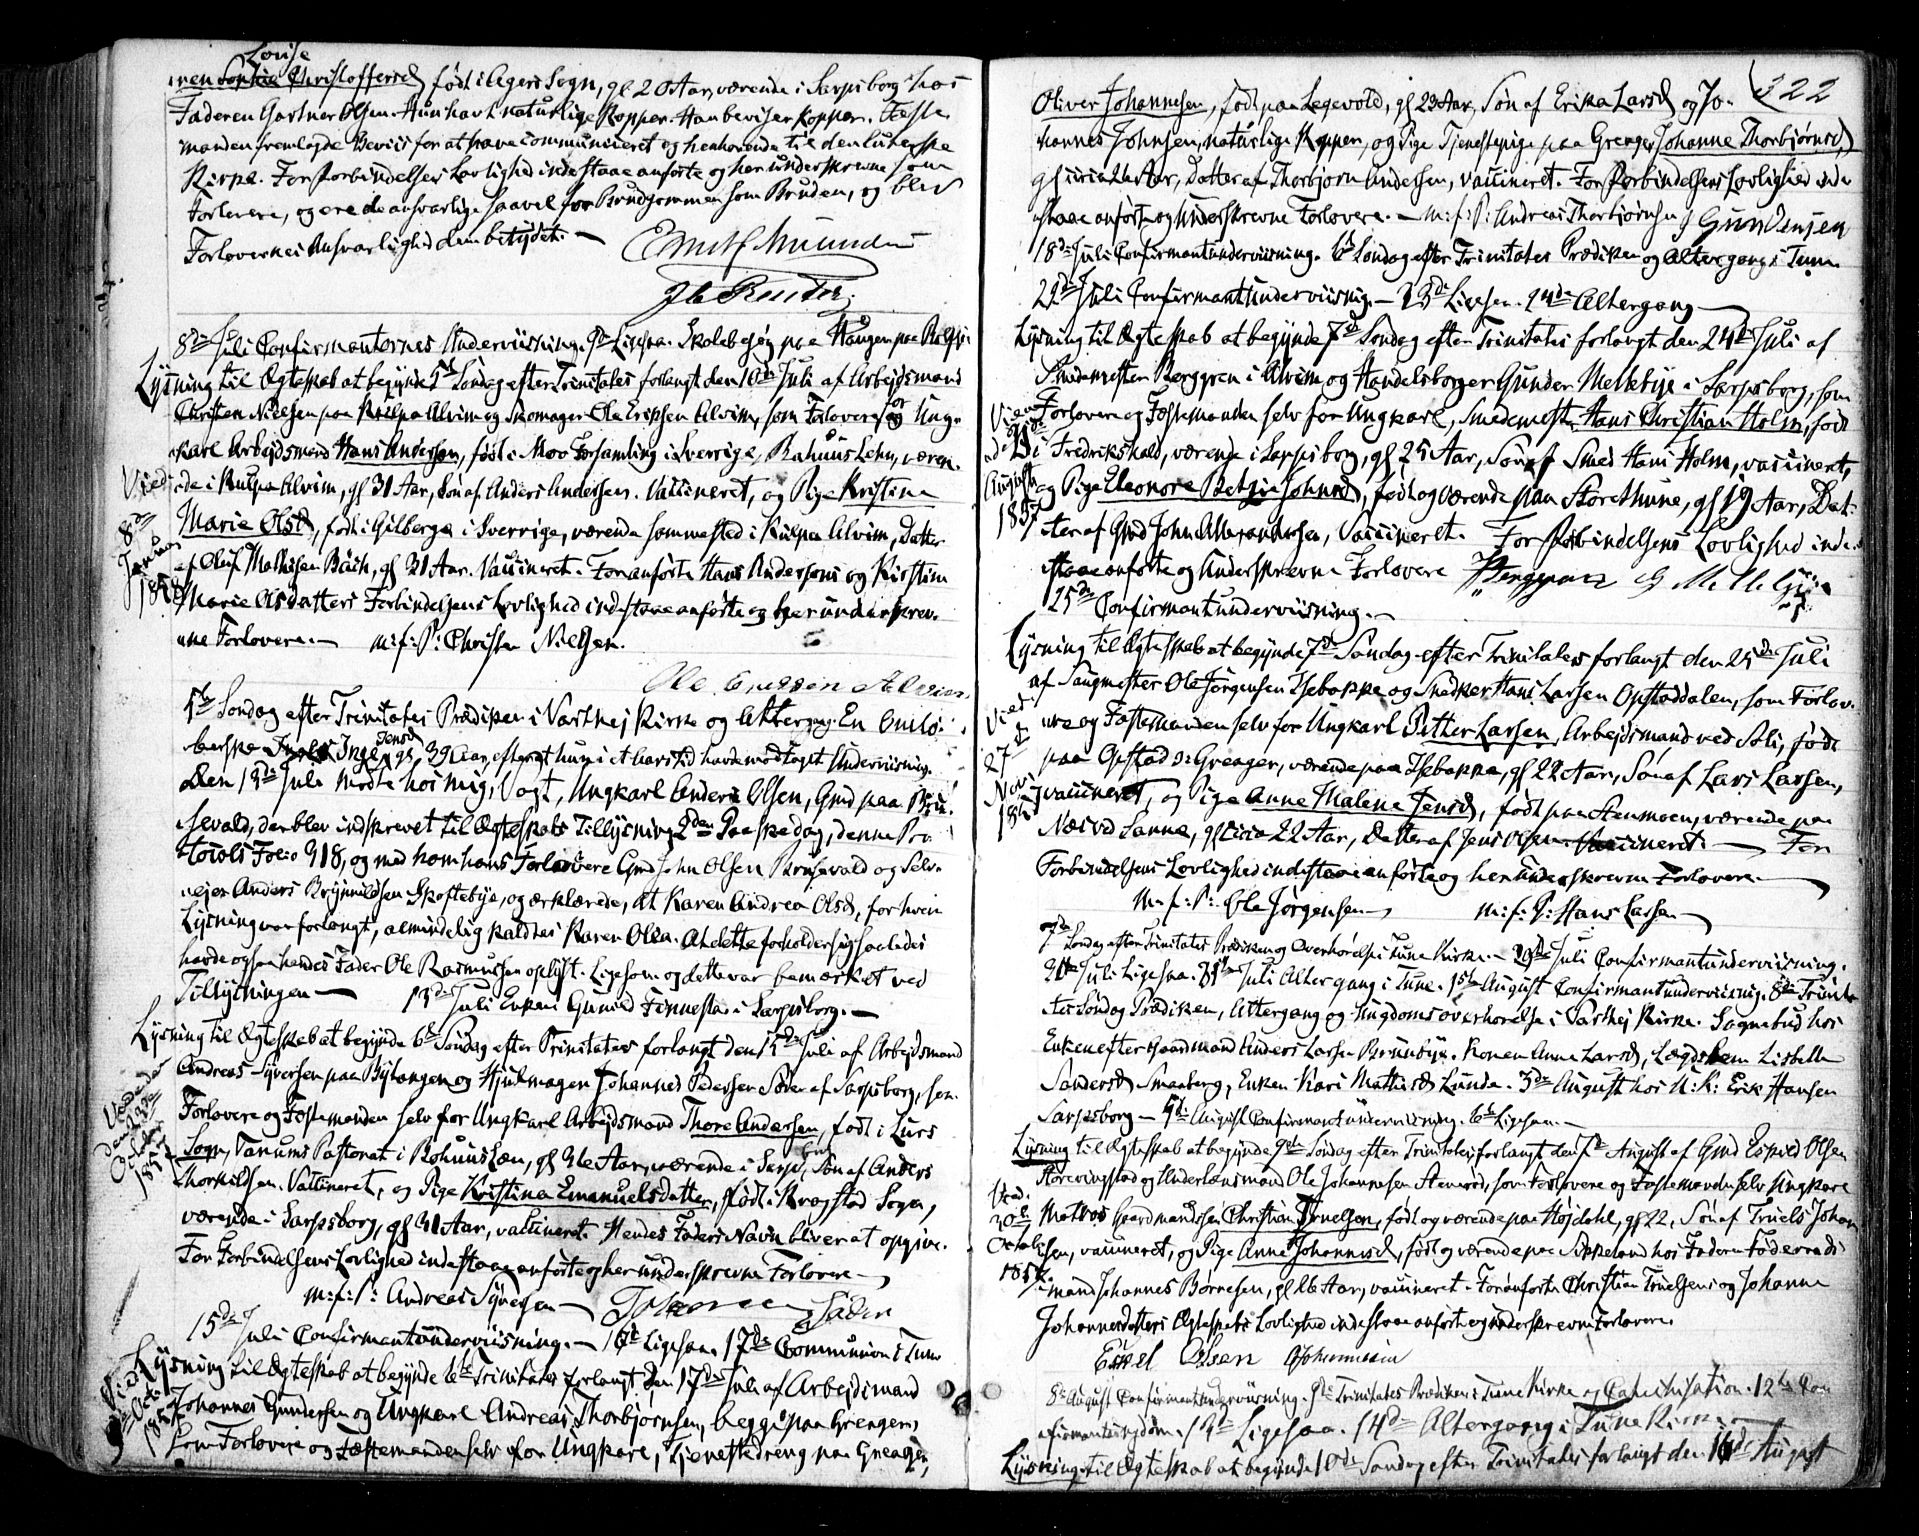 Louise
Christoffersd. født i Agers Sogn, gl 20 Aar, værende i Sarpsborg hos
Faderen Gartner Olsen. Hun havt naturlige Kopper. Han beviser Kopper. Fæste-
manden fremlagde Beviis for at have communiceret og henhørende til den luterske
Kirke. For Forbindelsens Lovlighed indestaae anførte og her underskrevne som
Forlovere, og ere de ansvarlige saavel for Brudgommen som Bruden, og blev
Forlovernes Ansvarlighed dem betydet. —
8de Juli Confirmanternes Underviisning. 9de Ligesaa. Skolebesøg paa Haugen paa
Lysning til Ægteskab at begynde 5te Søndag efter Trinitates forlangt den 10de Juli af Arbejdsmand
Christen Nielsen paa Kulpa Alvim og Skomager Ole Eriksen Alvim, som Forlovere for Ung-
karl Arbejdsmand Hans Andersen, født i Moo Forsamling i Sverrige, Bahuus Lehn, væren-
de i Kulpa Alvim, gl 31 Aar, Søn af Anders Andersen. Vaccineret, og Pige Kristina
Marie Olsd, født i Gilberga i Sverrige, værende sammested i Kulpa Alvim, Datter
af Oluf Mathisen Bäck, gl 31 Aar. Vaccineret. For anførte Hans Andersens og Kirstine
Marie Olsdatters Forbindelsens Lovlighed indestaae anførte og her underskrev-
ne Forlovere. — m: f: P: Christen Nielsen.
Viede
8de
Januar
1858
Ole Erikssen Alvim
5te Søndag efter Trinitates Prædiken i Varthej Kirke og Altergang. En
Inge Jensd, gl 39 Aar, efterat hun i et Aars Tid havde modtaget Underviisning.
Den 13de Juli mødte hos mig, Vogt, Ungkarl Anders Olsen, Gmd paa Bru-
sevald, der blev indskrevet til Ægteskabs Tillysning 2den Paaskedag, denne Pro-
tocols Folio 318, og med ham hans Forlovere Gmd John Olsen Brusevald og Selv-
ejer Anders Brynnildsen Skoftebye, og erklærede, at Karen Andrea Olsd, for hvem
Lysning var forlangt, almindelig kaldtes Karen Olea. At dette forholder sig saaledes
havde ogsaa hendes Fader Ole Rasmussen oplyst. Ligesom og dette var bemærket ved
Tillysningen — 13de Juli Enken Gunild Finnestad i Sarpsborg. —
Lysning til Ægteskab at begynde 6te Søndag efter Trinitates forlangt den 15de Juli af Arbejdsmand
Andreas Syversen paa Bylangen og Hjulmager Johannes Pedersen Söder af Sarpsborg, som
Forlovere og Fæstemanden selv for Ungkarl Arbejdsmand Thore Andersen, født i Lurs
Sogn, Tanums Pastorat i Bohuus Læn, gl 36 Aar, værende i Sarpsborg, Søn af Anders
Thorkildsen. Vaccineret, og Pige Kristina Emanuelsdatter, født i Krogstad Sogn,
værende i Sarpsborg, gl 31 Aar, vaccineret. Hendes Faders Navn bliver at opgive.
For Forbindelsens Lovlighed indestaae anførte og her underskrevne Forlovere —
m: f: P: Andreas Syversen — Johannes Söder
Viede
den 22de
October
1857
15de Juli Confirmantunderviisning. — 16de Ligesaa. 17de Communion i Tune
Lysning til Ægteskab at begynde 6te Trinitates forlangt den 17de Juli af Arbejdsmand
Johannes Gundersen og Ungkarl Andreas Thorbjørnsen, begge paa Greager,
som Forlovere og Fæstemanden selv for Ungkarl, Tjenestedreng paa Greager,
Viede
Octo
1857
322
Oliver Johannesen, født paa Legevold, gl 23 Aar, Søn af Erika Larsd og Jo-
hannes Johnsen, naturlige Kopper, og Pige Tjenestepige paa Greager Johanne Thorbjørnsd,
gl circa 26 Aar, Datter af Thorbjørn Andersen, vaccineret. For Forbindelsens Lovlighed inde-
staae anførte og underskrevne Forlovere. — m: f: P: Andreas Thorbjørnsen J Gundersen
18de Juli Confirmantunderviisning. 6te Søndag efter Trinitates Prædiken og Altergang i Tune
22de Juli Confirmantunderviisning. — 23de Ligesaa. 24de Altergang —
Lysning til Ægteskab at begynde 7de Søndag efter Trinitates forlangt den 24de Juli af
Smedemester Berggren i Alvim og Handelsborger Gunder Mellebye i Sarpsborg, som
Forlovere og Fæstemanden selv for Ungkarl, Smedemester Hans Christian Holm, født
i Fredrikshald, værende i Sarpsborg, gl 25 Aar, Søn af Smed Hans Holm, vaccineret,
og Pige Eleonore Betzie Johnsd, født og værende paa Store Thune, gl 19 Aar, Dat-
ter af Gmd John Alexandersen, Vaccineret. For Forbindelsens Lovlighed inde-
staae anførte og underskrevne Forlovere Berggren G Mellebye
Viede
August
1857
25de Confirmantunderviisning. —
Lysning til Ægteskab at begynde 7de Søndag efter Trinitates forlangt den 25de Juli
af Saugmester Ole Jørgensen Isebakke og Snedker Hans Larsen Opstaddalen, som Forlov-
ere og Fæstemanden selv for Ungkarl Petter Larsen, Arbejdsmand ved Soli, født
paa Opstad Greager, værende paa Isebakke, gl 22 Aar, Søn af Lars Larsen,
vaccineret, og Pige Anne Malene Jensd, født paa Steenmoen, værende paa
Næs ved Sanne, gl circa 22 Aar, Datter af Jens Olsen Vaccineret. — For
Forbindelsens Lovlighed indestaae anførte og her underskrevne Forlovere. —
m: f: P: Ole Jørgensen — m: f: P: Hans Larsen —
Viet
27de
Nov
185
7de Søndag efter Trinitates Prædiken og Overhørelse i Tune Kirke. — 29de Juli Confirmantunderviisning.
30te Juli Ligesaa. 31te Juli Altergang i Tune. 1ste August Confirmantunderviisning. 8de Trinita-
tes Søndag Prædiken, Altergang og Ungdomsoverhørelse i Varthej Kirke. Sognebud hos
Enken efter Gaardmand Anders Larsen Brunsbye. Konen Anne Larsd, Lægdslem Lisbeth
Sandersd Smaaberg, Enken Kari Mathisd Lunde. 3de August hos Erik Hansen
Sarpsborg — 5te August Confirmantunderviisning. 6te Ligesaa. —
Lysning til Ægteskab at begynde 9de Søndag efter Trinitates forlangt den 7de August af Gmd Eskild Olsen
og Underlænsmand Ole Johannesen Stenerød, som Forlovere og Fæstemanden selv Ungkarl
Matros Gaardmandssøn Christian Truelsen, født og værende paa Højdahl, gl 22, Søn af Truels Johan-
nsen, vaccineret, og Pige Anne Johannesd, født og værende paa hos Faderen Føderaads-
mand Johannes Børresen, gl 26 Aar, vaccineret. For anførte Christian Truelsens og Johanne
Johannesdatters Ægteskabs Lovlighed indestaae anførte og underskrevne Forlovere.
Eskel Olsen OJohannesen
Vied.
30te
October
1857.
8de August Confirmantunderviisning. 9de Trinitates Prædiken i Tune Kirke og Catechisation. 12te Con-
firmantungdom. 13de Ligesaa. 14de Altergang i Tune Kirke —
Lysning til Ægteskab at begynde 10de Søndag efter Trinitates forlangt den 14de August